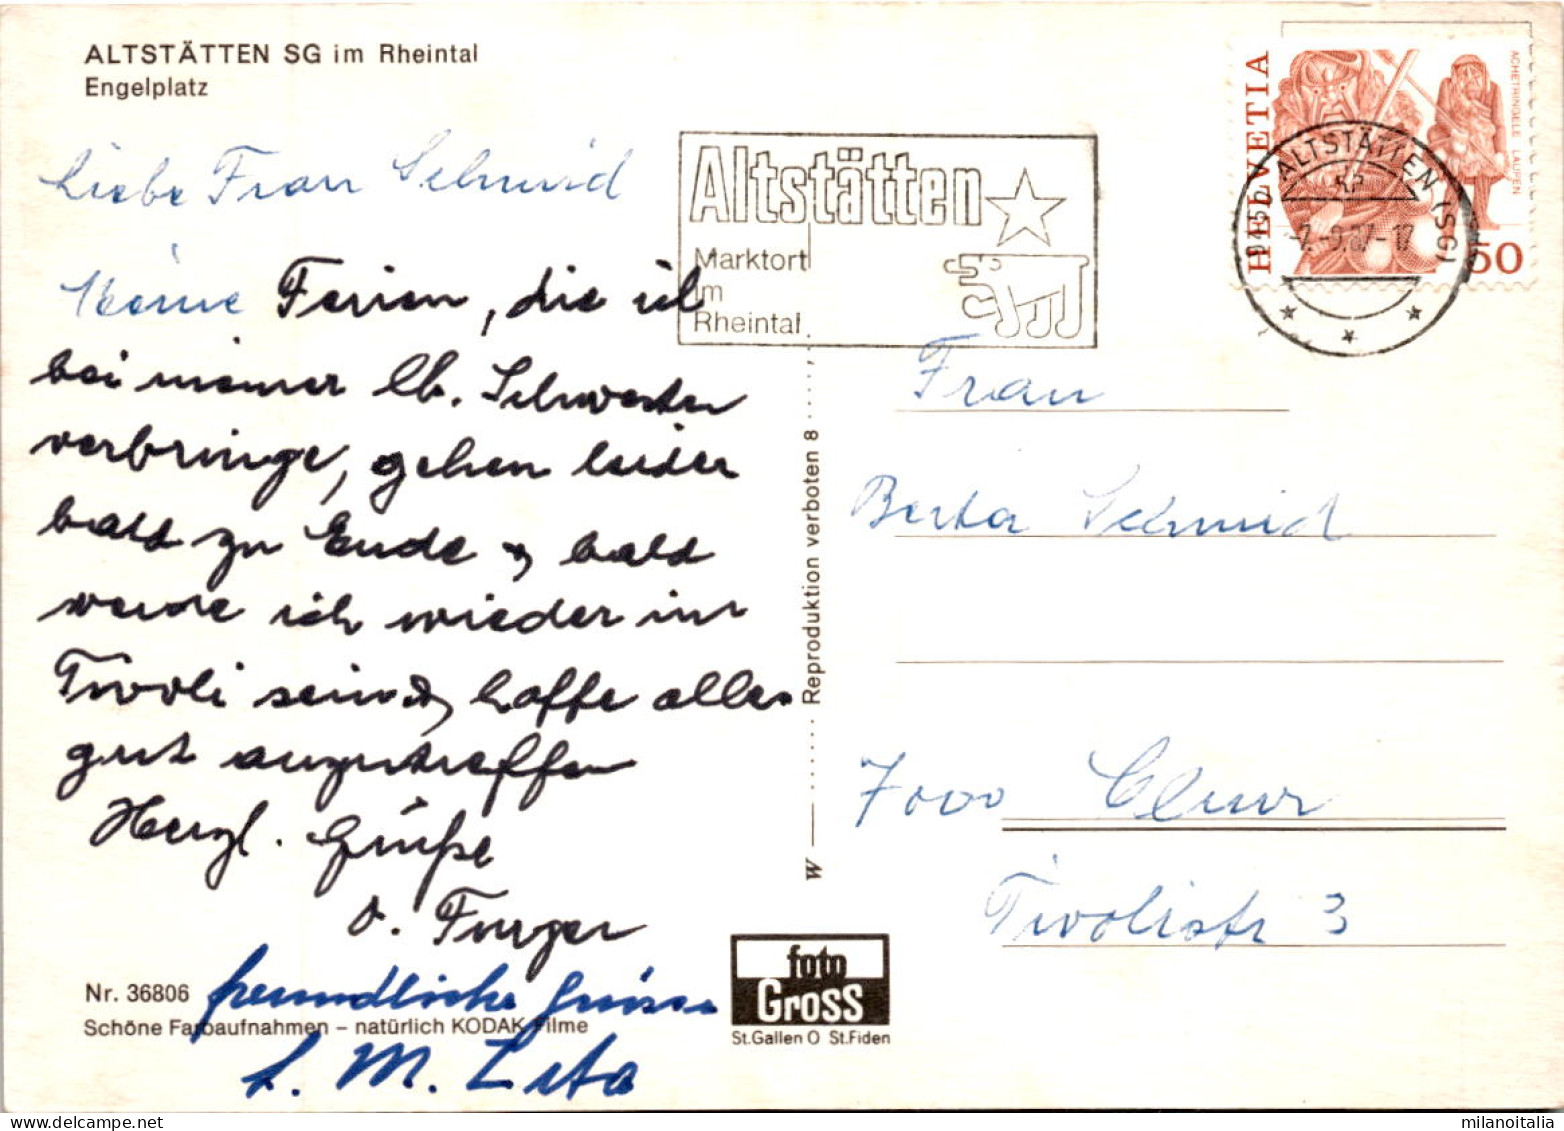 ALTSTÄTTEN SG im Rheintal
Engelplatz
Liebe Frau Schmid
Meine Ferien, die ich
bei meiner lb. Schwester
verbringe, gehen leider
bald zu Ende & bald
werde ich wieder im
Tivoli sein & hoffe alles
gut anzutreffen
Herzl. Grüße
O. Furger
freundliche Grüsse
S. M. Zita
Nr. 36806
Schöne Farbaufnahmen – natürlich KODAK Filme
Altstätten
Marktort
im
Rheintal
HELVETIA
ACHETRINGELE LAUFEN
50
9450 ALTSTÄTTEN (SG)
-9.87-17
W Reproduktion verboten 8
Frau
Berta Schmid
7000 Chur
Tivolistr 3
foto
Gross
St.Gallen O St.Fiden
milanoitalia